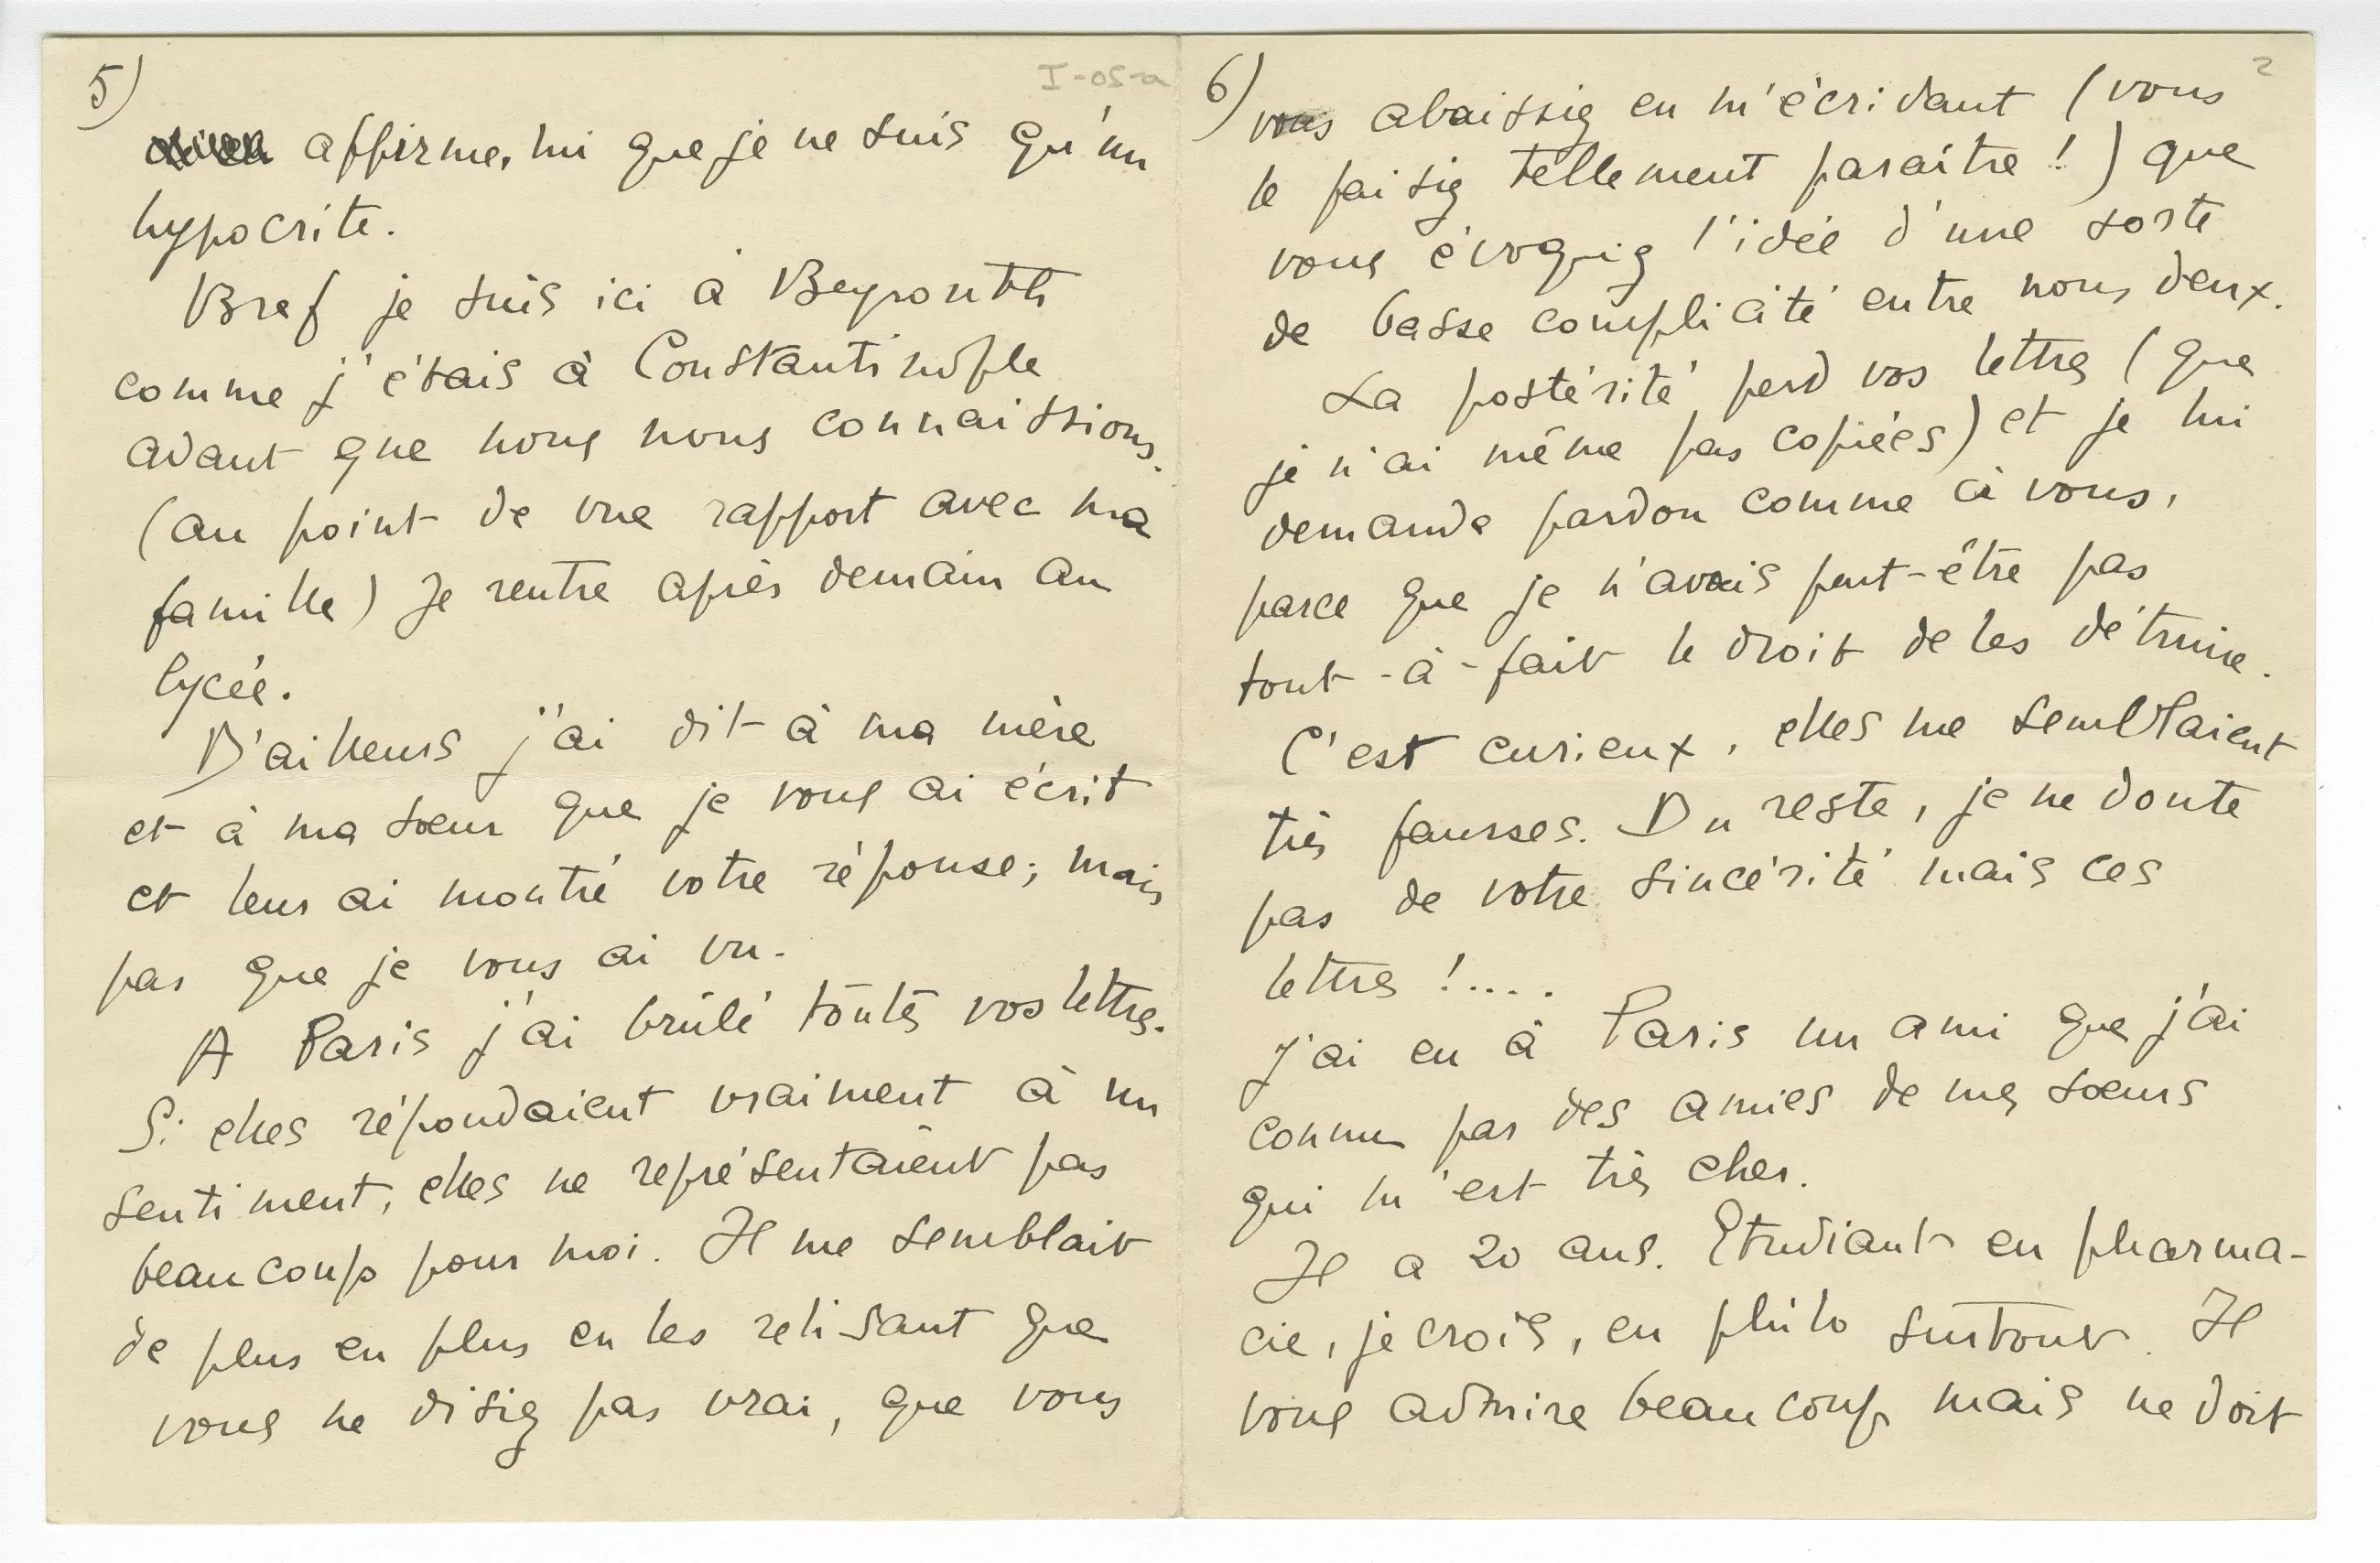 5)
I-05-a
affirme, lui que je ne suis qu'un
hypocrite.
Bref je suis ici à Beyrouth
comme j'étais à Constantinople
avant que nous nous connaissions.
(au point de vue rapport avec ma
famille) Je rentre après demain au
lycée.
D'ailleurs j'ai dit à ma mère
et à ma sœur que je vous ai écrit
et leur ai montré votre réponse; mais
pas que je vous ai vu.
A Paris j'ai brûlé toutes vos lettres.
Si elles répondaient vraiment à un
sentiment, elles ne représentaient pas
beaucoup pour moi. Il me semblait
de plus en plus en les relisant que
vous ne disiez pas vrai, que vous
6)
2
vous abaissiez en m'écrivant (vous
le faisiez tellement paraître !) que
vous évoquiez l'idée d'une sorte
de basse complicité entre nous deux.
La postérité perd vos lettres (que
je n'ai même pas copiées) et je lui
demande pardon comme à vous,
parce que je n'avais peut-être pas
tout-à-fait le droit de les détruire.
C'est curieux, elles me semblaient
très fausses. Du reste, je ne doute
pas de votre sincérité mais ces
lettres !....
J'ai eu à Paris un ami que j'ai
connu par des amies de mes sœurs
qui m'est très cher.
Il a 20 ans. Etudiant en pharma-
cie, je crois, en philo surtout. Il
vous admire beaucoup mais ne doit